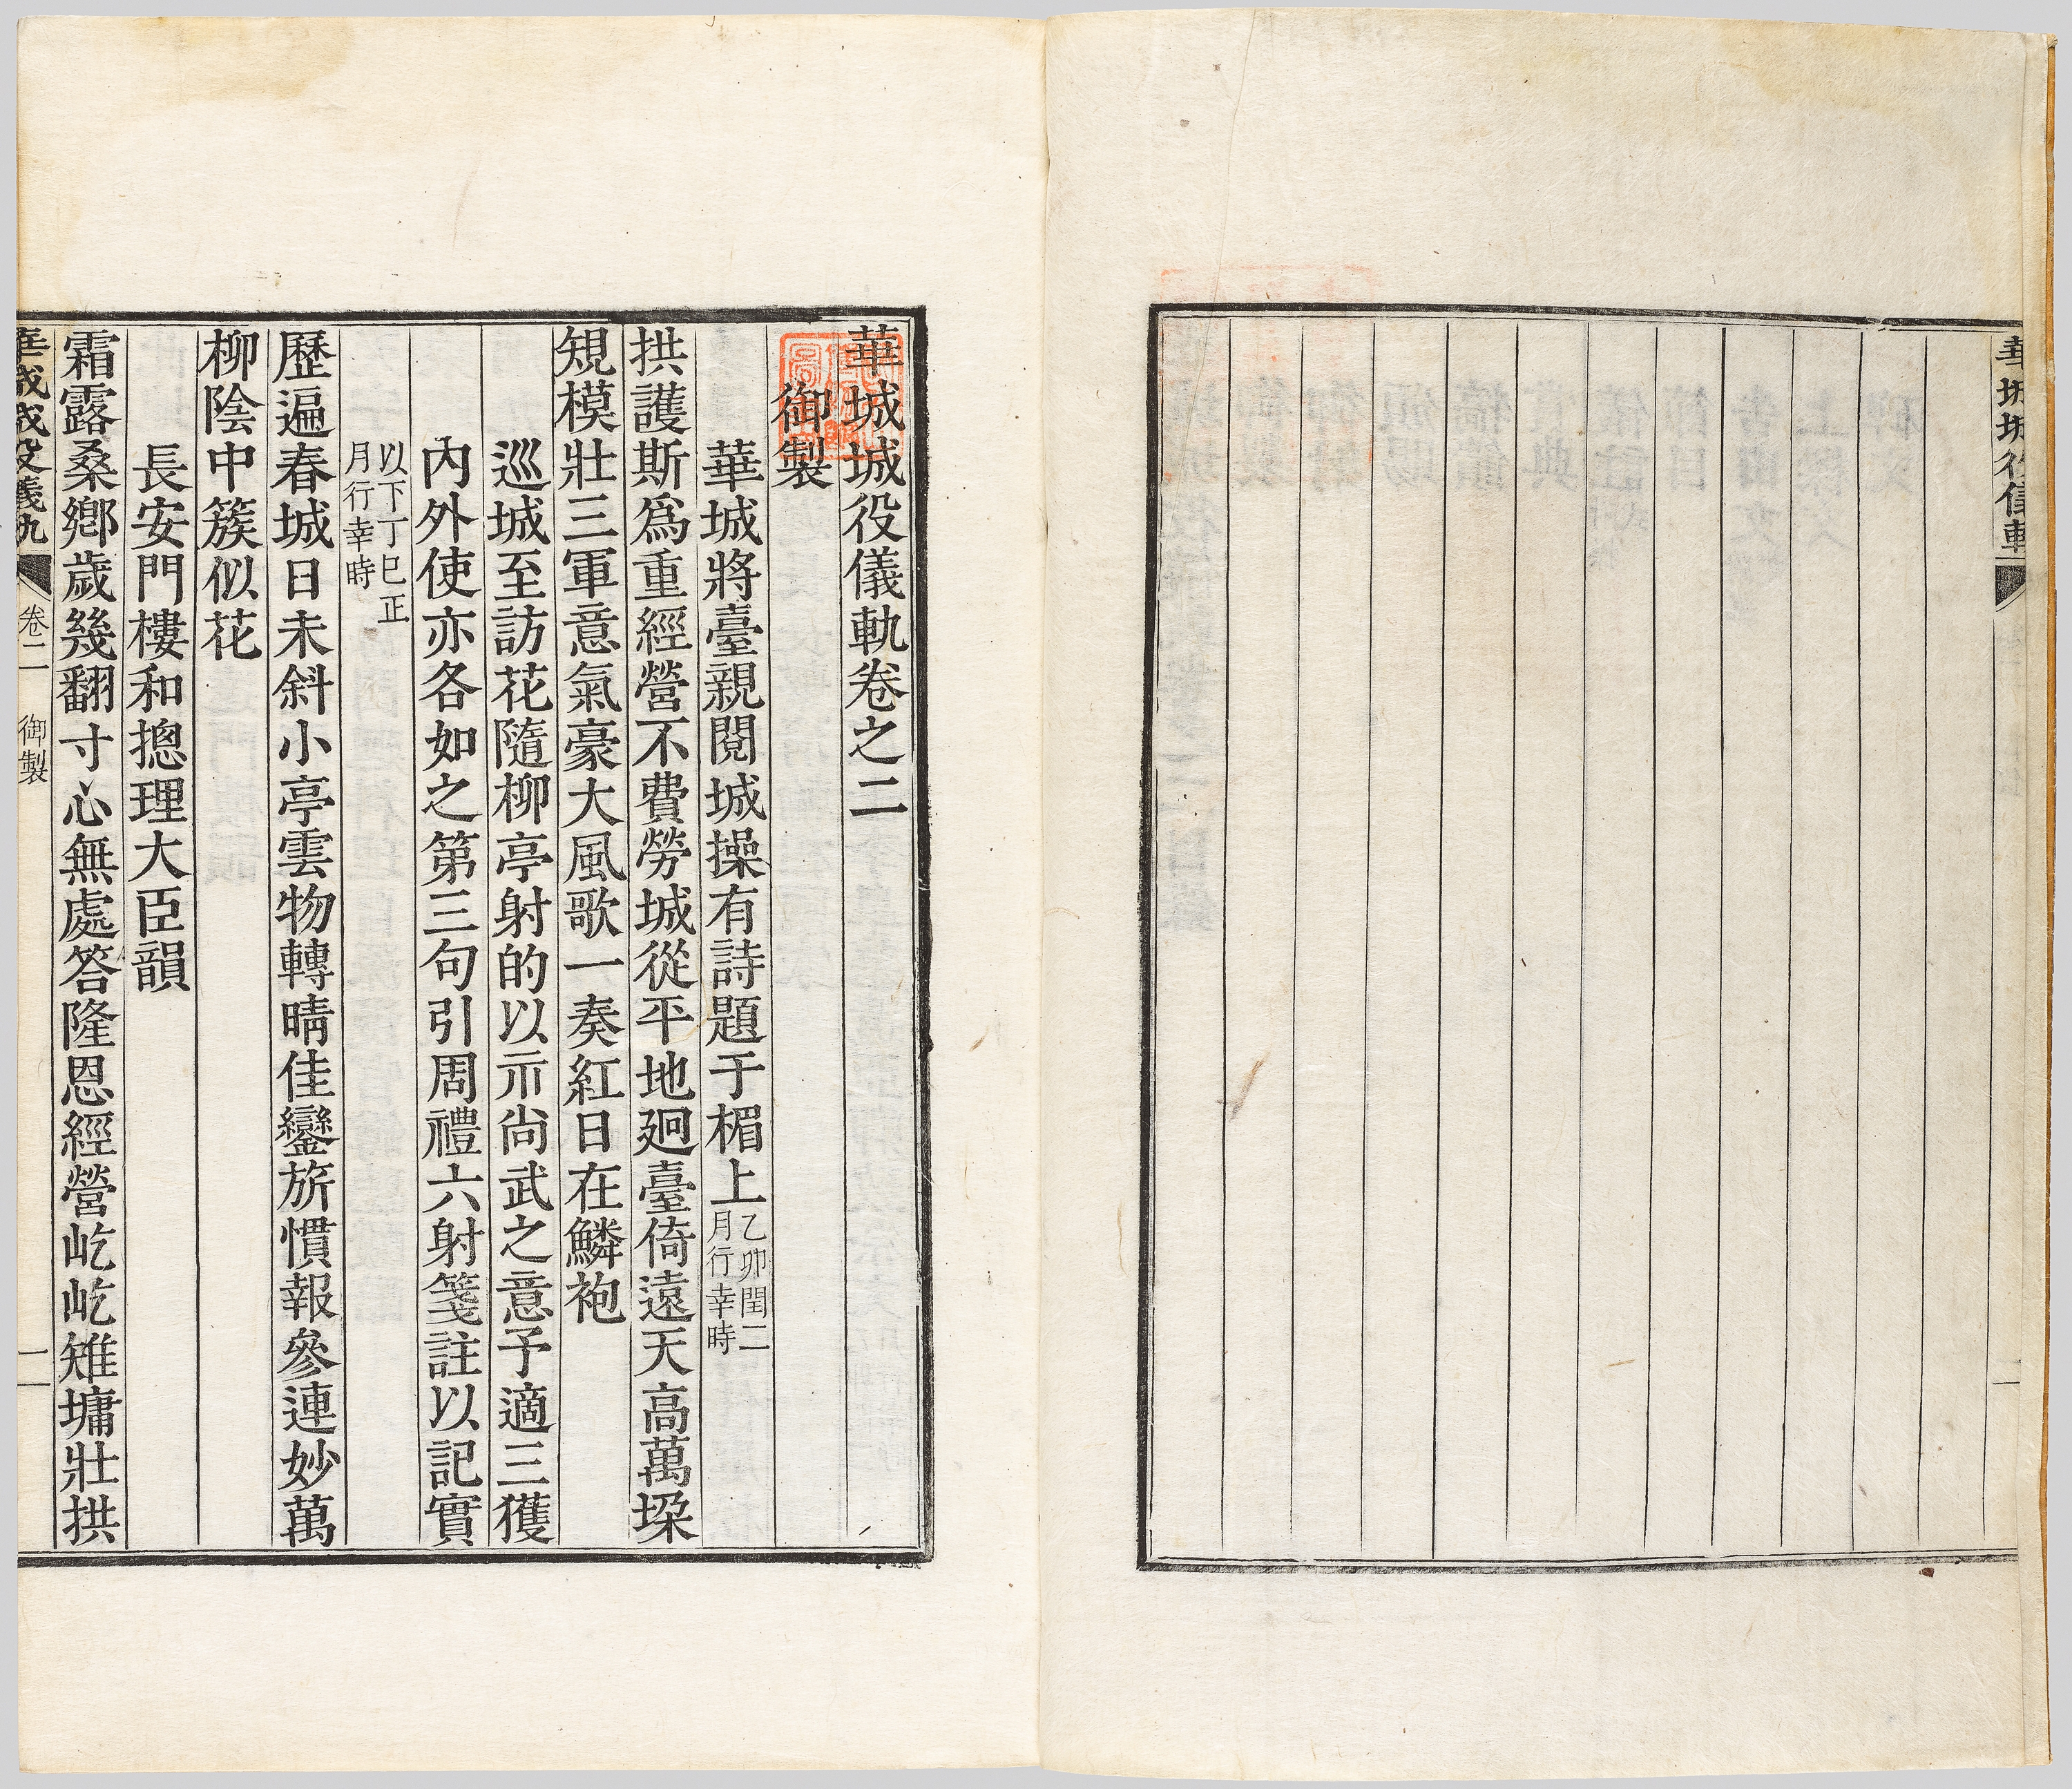 華城城役儀軌卷之二
御製
華城將臺親閱城操有詩題于楣上乙卯閏二月行幸時
拱護斯爲重經營不費勞城從平地迥臺倚遠天高萬垜
規模壯三軍意氣豪大風歌一奏紅日在鱗袍
巡城至訪花隨柳亭射的以示尙武之意予適三獲
內外使亦各如之第三句引周禮六射箋註以記實
以下丁巳正月行幸時
歷遍春城日未斜小亭雲物轉晴佳鑾旂慣報參連妙萬
柳陰中簇似花
長安門樓和摠理大臣韻
霜露桑鄕歲幾翻寸心無處答隆恩經營屹屹雉墉壯拱
華城城役儀軌 卷二 御製 二